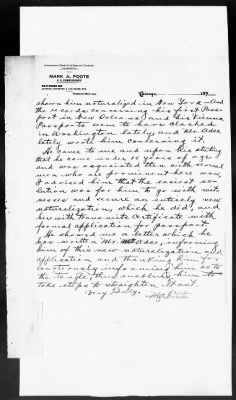 MARK A. FOOTE
Chicago, 189
shown him naturalized in New York. And
the records concerning his first Pass-
port in New Orleans, and his Vienna
Passports seem to have clashed
in Washington lately and Mr. Adee
lately wrote him concerning it.
He came to me and upon his stating
that he came under 18 years of age
and was associated then with several
men who are prominent here now,
I advised him that the easiest so-
lution was for him to go with wit-
nesses and secure an entirely new
naturalization, which he did, and
herewith transmits certificate with
formal application for passport.
He showed me a letter which he
has written Mr. Adee, informing
him of this new naturalization and
application and thanking him for
courteously informing him as to
the tangle, thus enabling him to
take steps to straighten it out.
Very Truly,
M A Foote